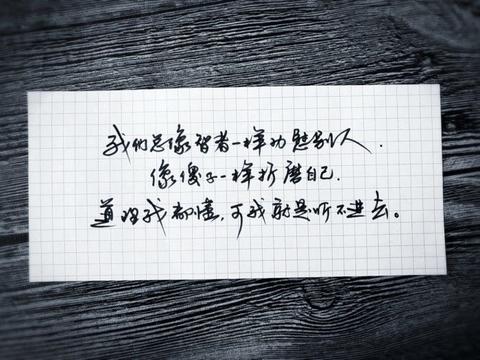 我们总像智者一样劝慰别人，
像傻子一样折磨自己.
道理我都懂，可我就是听不进去。